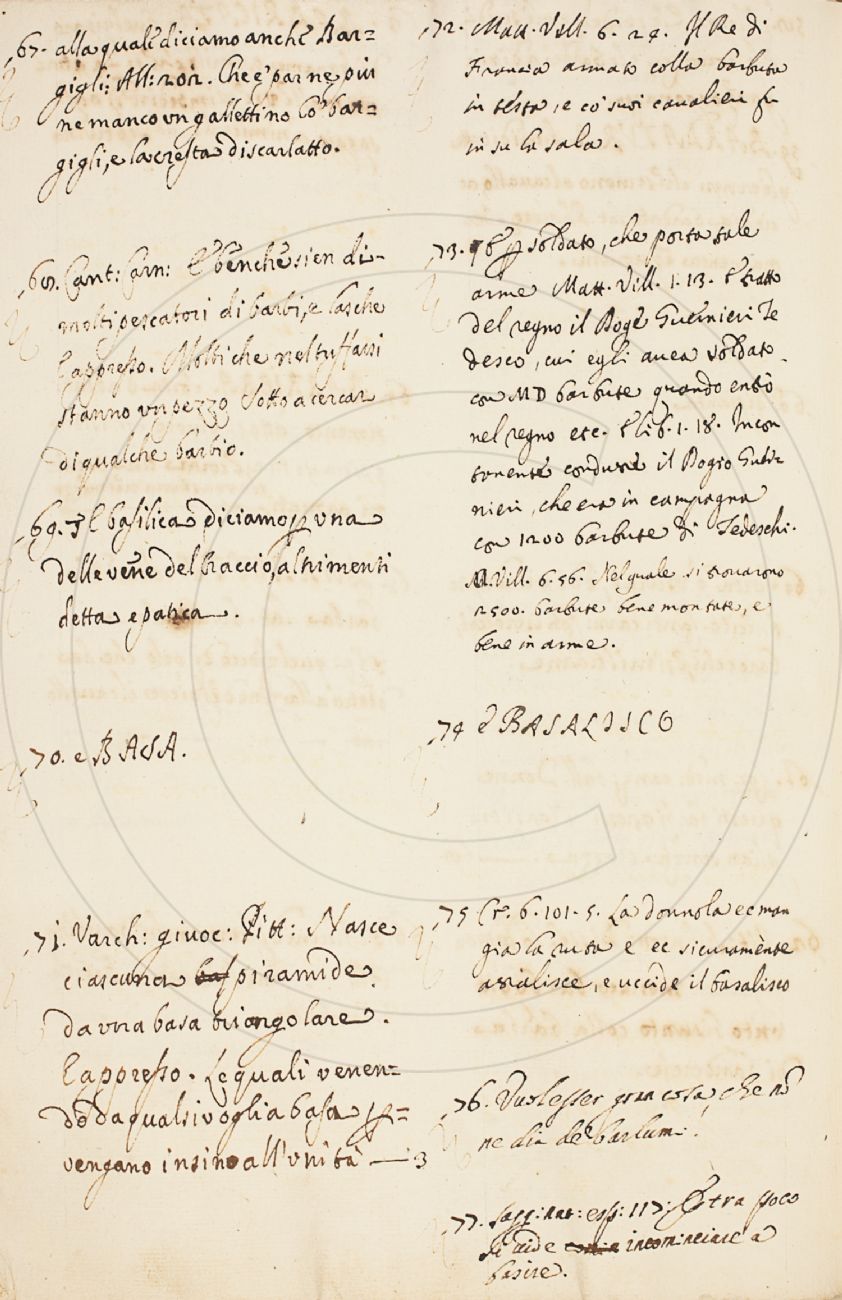 67. alla quale diciamo anche Bar=
gigli: All: 202. Che e' par ne piu
ne manco un gallettino Co' bar=
gigli, e la cresta di scarlatto.
68. Cant: Carn: E benche sien di
molti pescatori di barbi, e lasche
E appresso. Molti che nel tuffarsi
stanno un pezzo Sotto a cercar
di qualche barbio.
69. E basilica diciamo p una
delle vene del braccio, altrimenti
detta epatica.
70. e BASA.
71. Varch: giuoc: Pitt: Nasce
ciascuna bas piramide
da una basa triangolare.
E appresso. Le quali venen=
do da qualsivoglia basa p=
vengano insino all'unità — 3
72. Matt. Vill. 6. 24. Il Re di
Francia armato colla barbuta
in testa, e co' suoi cavalieri fu
in su la sala.
73. p soldato, che porta tale
arme Matt. Vill. 1. 13. E tratto
del regno il Doge Guernieri Te
desco, cui egli avea soldato
con MD barbute quando entrò
nel regno etc. E lib. 1. 18. Incon
tanente condusse il Dogio Guer
nieri, che era in campagna
con 1200 barbute di Tedeschi.
M. Vill. 6. 56. Nel quale si trovarono
2500. barbute bene montate, e
bene in arme.
74 è BASALISCO
75 Cr. 6. 101. 5. La donnola ec man
gia la ruta e ec sicuramente
assalisce, e uccide il basalisco
76. Vuol esser gran cosa, che nō
ne dia de' barlumi.
77. Sagg. nat: esp: 117: E tra poco
si vide incominciare a
basire.